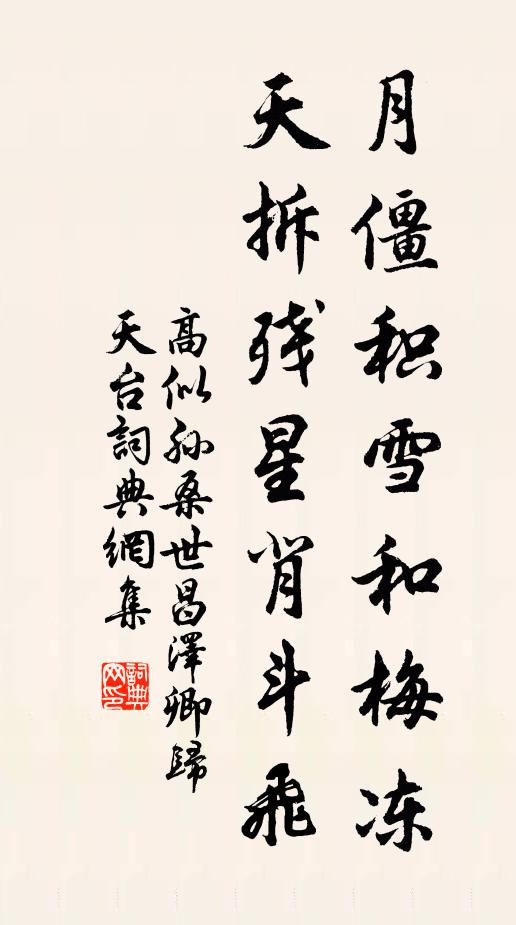 月僵积雪和梅冻
天拆残星背斗飛
高似孙桑世昌澤卿歸
天台詞典網集
詞典网印